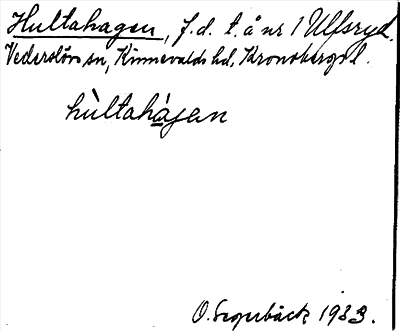 Hultahagen, f.d. t. å nr 1 Ulfsryd.
Vederslövs sn, Kinnevalds hd, Kronobergs l.
hùltahág̲en
O. Segerbäck 1933.